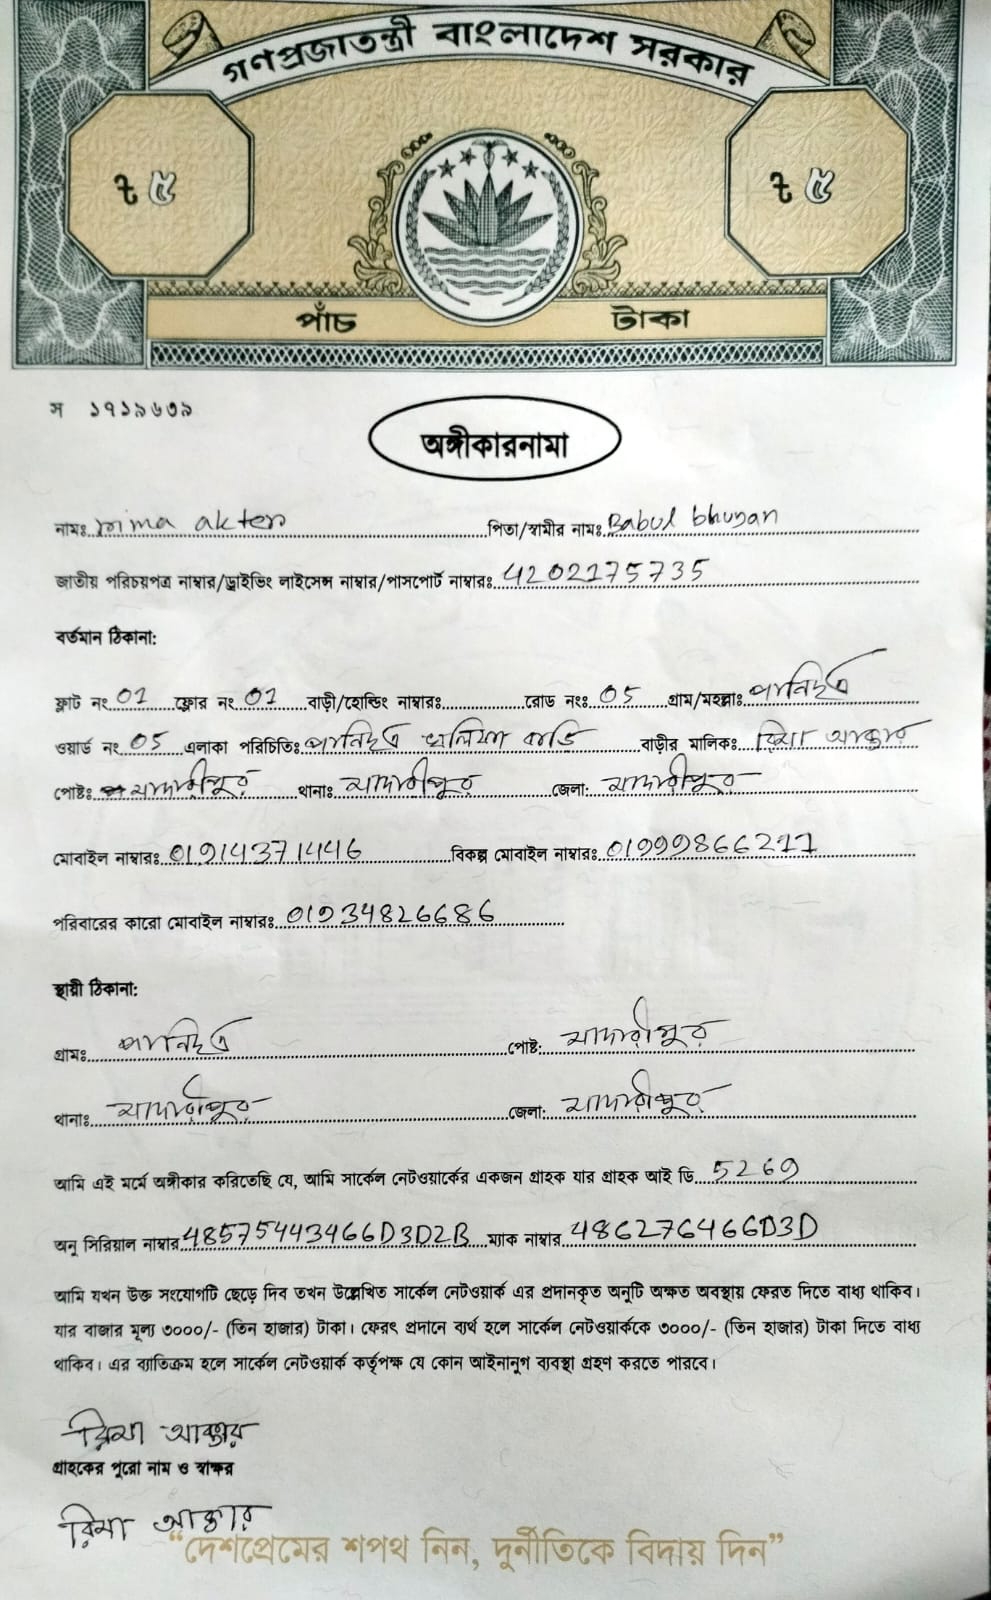 গণপ্রজাতন্ত্রী বাংলাদেশ সরকার
৳ ৫ ৳ ৫
পাঁচ টাকা
স ১৭১৯৬৩৯
অঙ্গীকারনামা
নামঃ rima akter পিতা/স্বামীর নামঃ Babul bhuyan
জাতীয় পরিচয়পত্র নাম্বার/ড্রাইভিং লাইসেন্স নাম্বার/পাসপোর্ট নাম্বারঃ 4202175735
বর্তমান ঠিকানা:
ফ্লাট নং 01 ফ্লোর নং 01 বাড়ী/হোল্ডিং নাম্বারঃ রোড নংঃ 05 গ্রাম/মহল্লাঃ
ওয়ার্ড নং 05 এলাকা পরিচিতিঃ বাড়ীর মালিকঃ রিমা আক্তার
পোষ্টঃ মাদারীপুর থানাঃ মাদারীপুর জেলা: মাদারীপুর
মোবাইল নাম্বারঃ 01914371446 বিকল্প মোবাইল নাম্বারঃ 01999866211
পরিবারের কারো মোবাইল নাম্বারঃ 01934826686
স্থায়ী ঠিকানা:
গ্রামঃ পোষ্ট: মাদারীপুর
থানাঃ মাদারীপুর জেলা: মাদারীপুর
আমি এই মর্মে অঙ্গীকার করিতেছি যে, আমি সার্কেল নেটওয়ার্কের একজন গ্রাহক যার গ্রাহক আই ডি 5269
অনু সিরিয়াল নাম্বার 48575443466D3D2B ম্যাক নাম্বার 486276466D3D
আমি যখন উক্ত সংযোগটি ছেড়ে দিব তখন উল্লেখিত সার্কেল নেটওয়ার্ক এর প্রদানকৃত অনুটি অক্ষত অবস্থায় ফেরত দিতে বাধ্য থাকিব।
যার বাজার মূল্য ৩০০০/- (তিন হাজার) টাকা। ফেরৎ প্রদানে ব্যর্থ হলে সার্কেল নেটওয়ার্ককে ৩০০০/- (তিন হাজার) টাকা দিতে বাধ্য
থাকিব। এর ব্যাতিক্রম হলে সার্কেল নেটওয়ার্ক কর্তৃপক্ষ যে কোন আইনানুগ ব্যবস্থা গ্রহণ করতে পারবে।
রিমা আক্তার
গ্রাহকের পুরো নাম ও স্বাক্ষর
রিমা আক্তার
“দেশপ্রেমের শপথ নিন, দুর্নীতিকে বিদায় দিন”